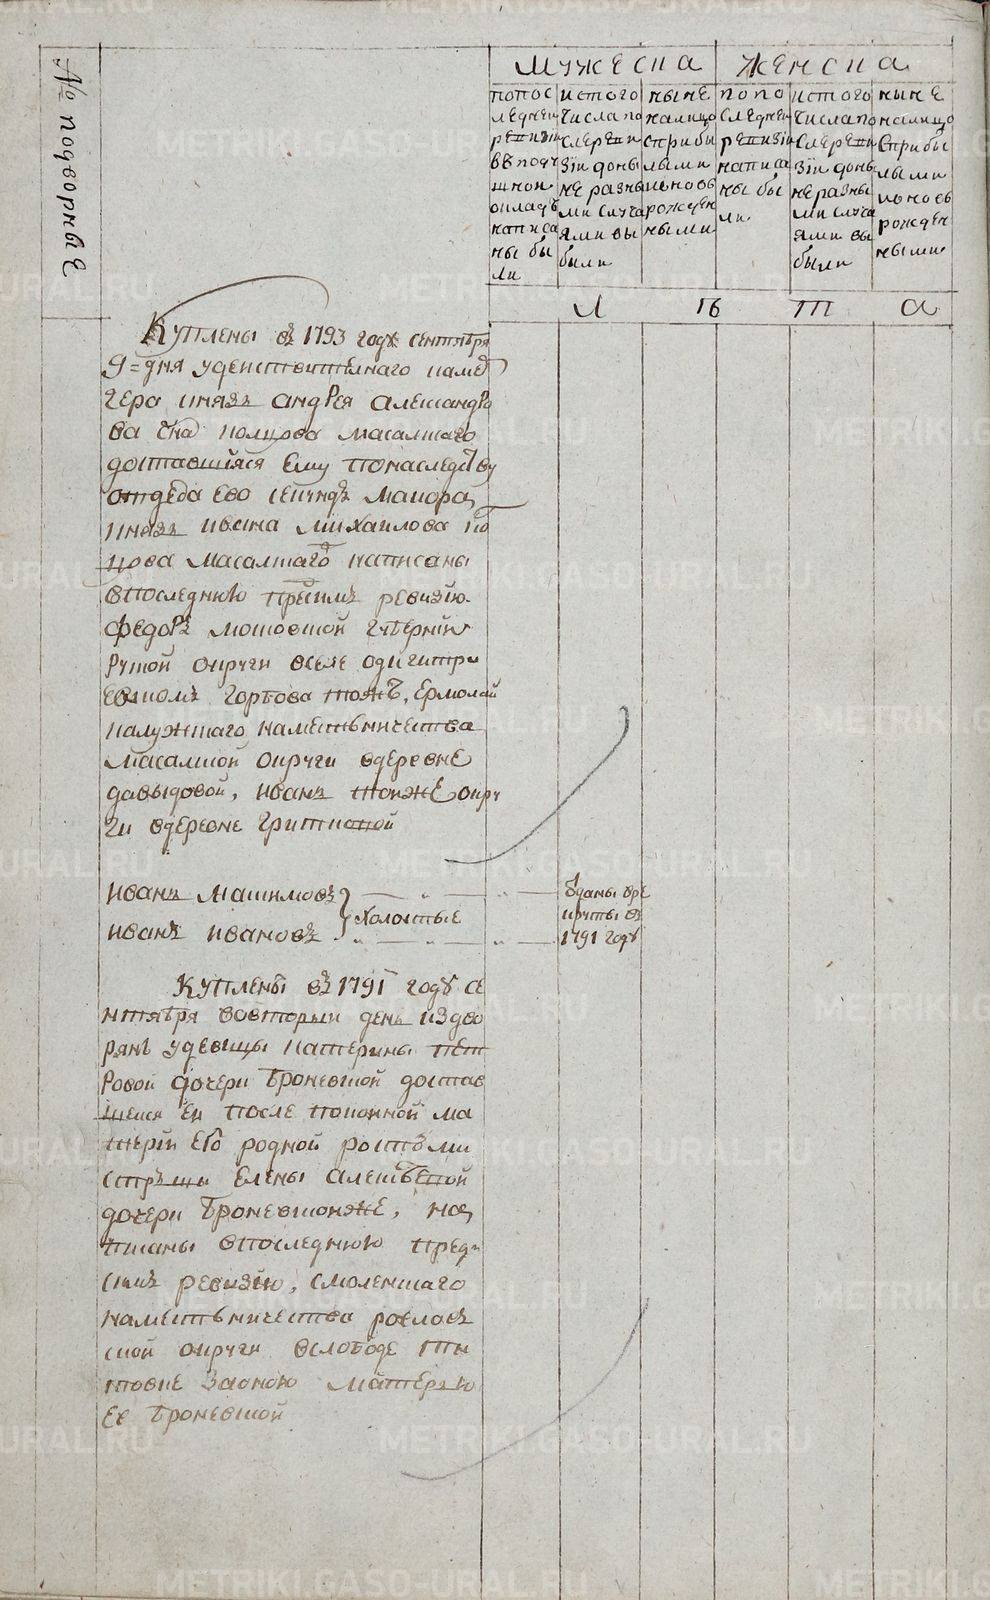 № подворные
Мужеска Женска
попос
леднеи
ревизии
вподу
шнои
окладъ
написа
ны бы
ли
истого
числа по
слереви
зiи доны
не разны
ми случа
ями вы
были
ныне
налицо
сприбы
лыми
ивновь
рожден
ными
попо
следнеи
ревизiи
написа
ны бы
ли
истого
числа по
слереви
зiи доны
не разны
ми случа
ями вы
были
ныне
налицо
сприбы
лыми
ивновь
рожден
ными
Л ѣ т а
Куплены въ 1793 годѣ сентября
9=дня удеиствителнаго камер
гера князь андрея александро
ва сна колцова масалскаго
доставшiяся ему понаследству
отдеда ево секундъ маиора,
князь ивана михаилова ко
лцова масалскаго написаны
впоследнюю предъидъ ревизiю
федоръ московской губернiи
рузской округи вселе одигитри
евскомъ горбова тожъ, ермолай
калужскаго наместьничества
масалской округи вдеревне
давыдовой, иванъ тоюже окру
ги вдеревне
иванъ макимовъ
иванъ ивановъ
холостые
отданы вре
круты въ
1791 годѣ
Куплены въ 1791 годѣ се
нтября вовторый день издво
рянъ удевицы катерины пет
ровой дочери броневской достав
шейся ей после покойной ма
тери его родной ротъми
стрши елены алексѣевой
дочери броневскойже, на
писаны впоследнюю предъ
симъ ревизiю, смоленскаго
наместьничества рославъ
ской округи вслободе
заоною матерью
ее броневской
METRIKI.GASO-URAL.RU